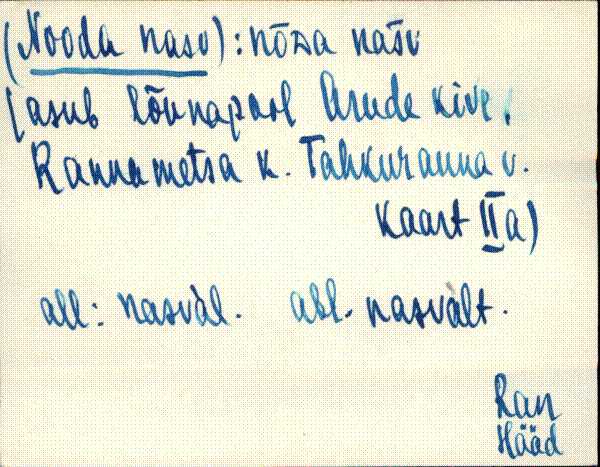 (Nooda nasv): nõDa năsv
[asub lõunapool Arude kive,
Rannametsa k. Tahkuranna v.
Kaart IIa)
all: nasvàl. abl. nasvàlt.
Ran
Hääd